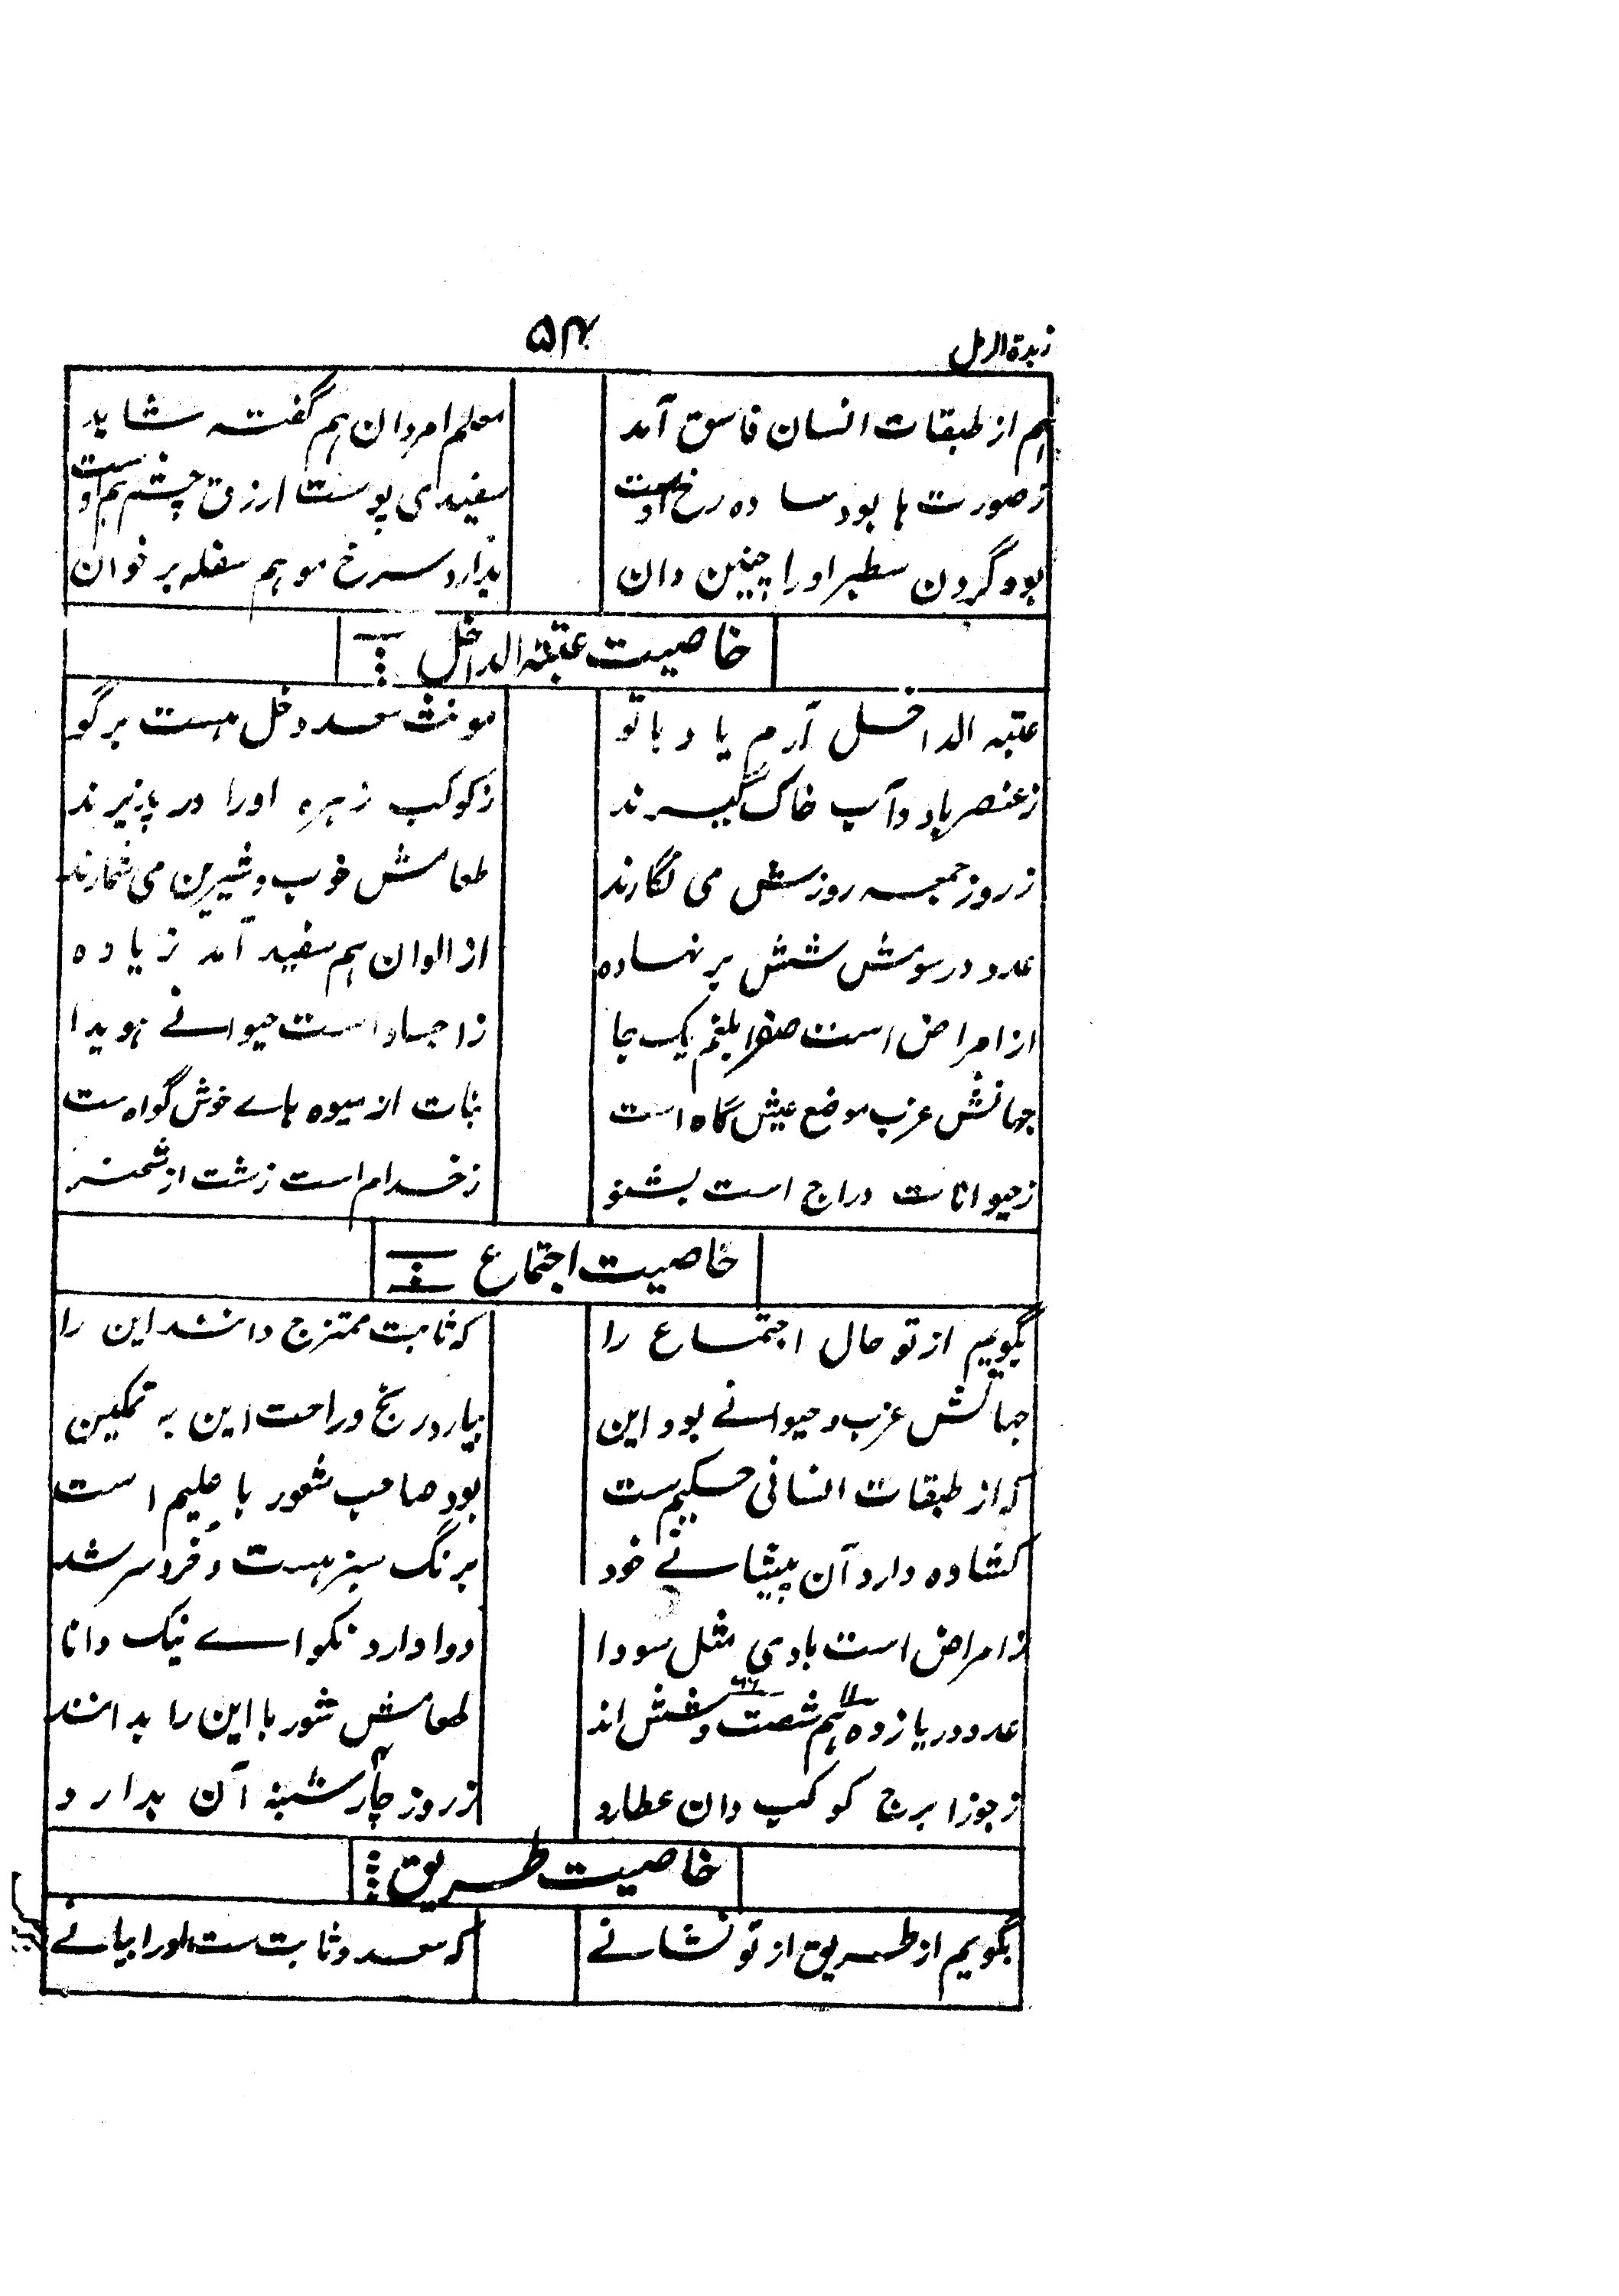 زبدة الرمل
۵۴
ہم از طبقات انسان فاسق آمد معلم امردان ہم گفتہ شاید
زصورت ہا بود سادہ رخ اوست سفیدی پوست ارزق چشم ہم اوست
بود گردن سطبر اورا چنین دان ندارد سرخ مو ہم سفلہ برخوان
خاصیت عتبۃ الداخل
عتبہ الداخل آرم یاد با تو مونث سعد دخل ہست برگو
زعنصر باد و آب خاک گیرند زکوکب زہرہ اورا در پذیرند
زروز جمعہ روزش می نگارند طعامش خوب و شیرین می شمارند
عدد در سومش شش برنہادہ از الوان ہم سفید آمد زیادہ
از امراض است صفرا بلغم یک جا زاجساد است حیوانے ہویدا
جہانش غرب موضع عیش گاہ است نبات از میوہ ہاے خوش گواہ ست
زحیوانات دراج است بشنو زخدام است زشت از
خاصیت اجتماع
بگویم از تو حال اجتماع را کہ ثابت ممتزج دانند این را
جہانش غرب و حیوانے بود این بیارد رنج و راحت این بہ تمکین
کہ از طبقات انسانی حکیم ست بود صاحب شعور با علیم است
کشادہ دارد آن پیشانے خود برنگ سبز ہست و فرد سر شد
زامراض است بادی مثل سودا دوا دارد نکو اے نیک دانا
عدد در یازدہ ۱۱ ہم شصت و شش ۶۶ اند طعامش شور با این را بدانند
زجوزا برج کوکب دان عطارد زروز چار ۴ شنبہ آن بدارد
خاصیت طریق
بگویم از طریق از تو نشانے کہ سعد و ثابت ست اورا بیانے